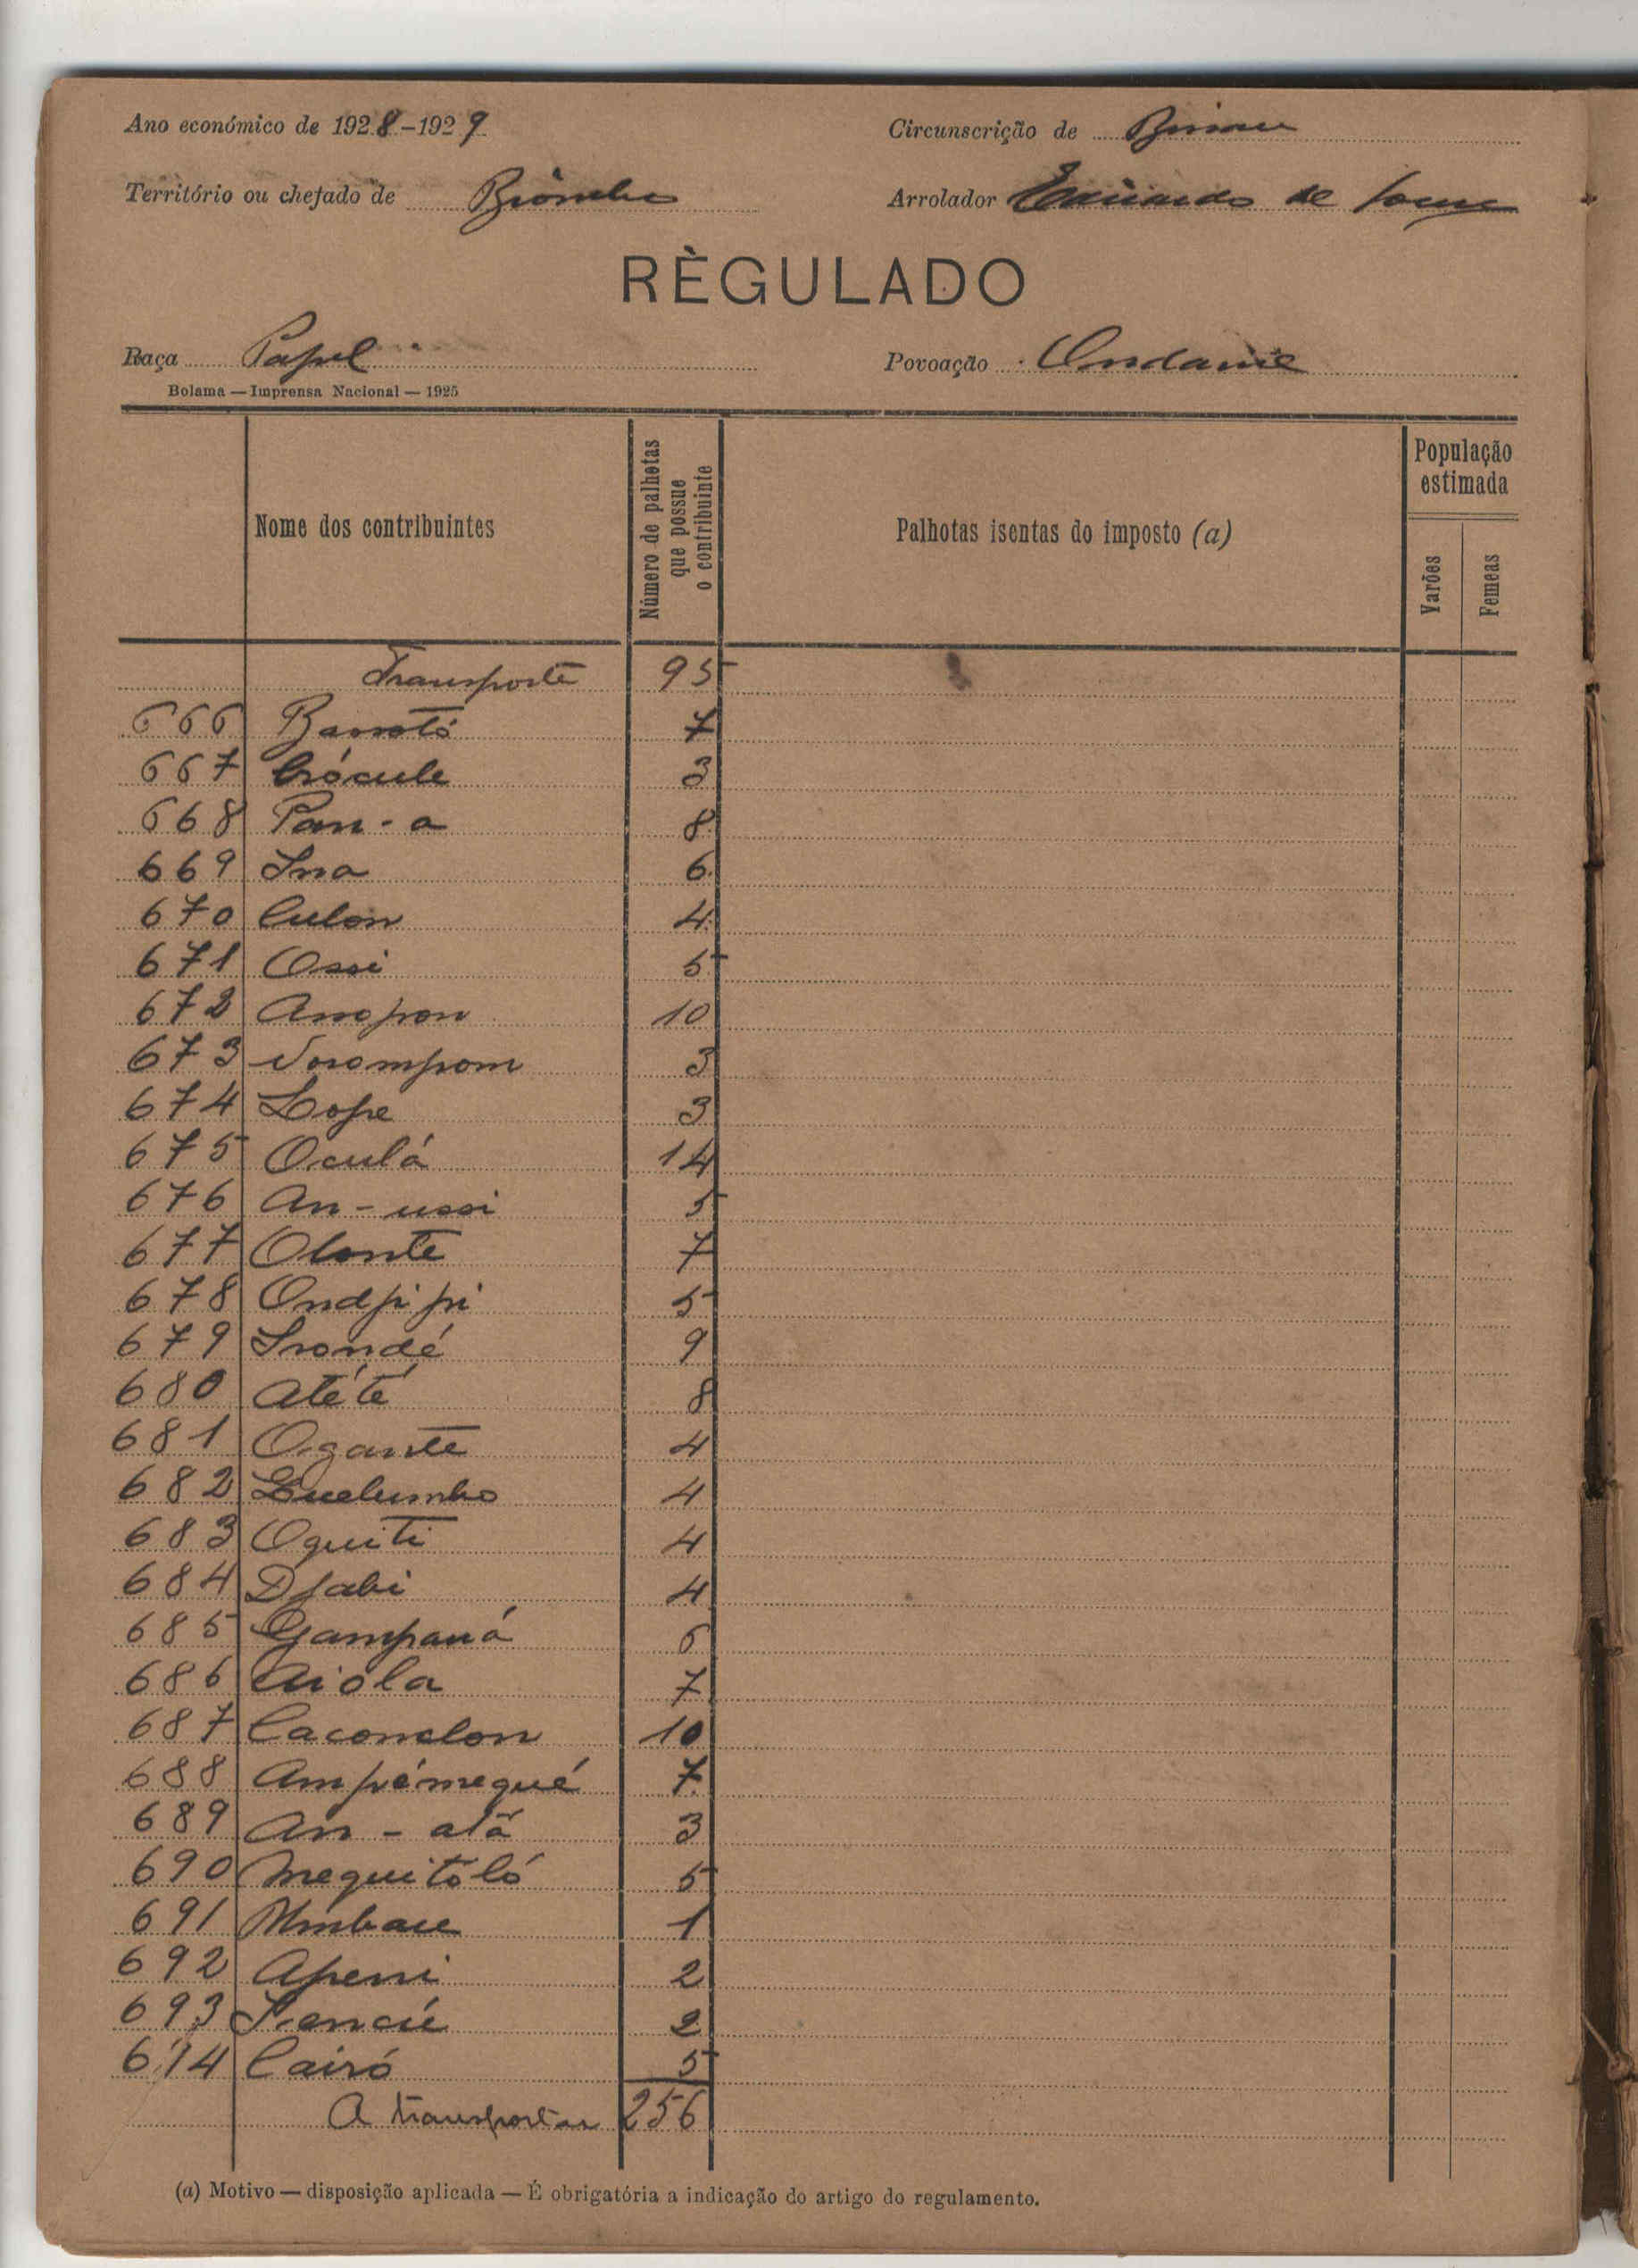 Ano económico de 1928-1929
Circunscrição de Bissau
Território ou chefado de Biombo
Arrolador de
RÈGULADO
Raça Papel
Povoação Ondame
Bolama — Imprensa Nacional — 1925
Nome dos contribuintes
Número de palhotas que possue o contribuinte
Palhotas isentas do imposto (a)
População estimada
Varões
Femeas
Transporte 95
666 7
667 3
668 Pan-a 8
669 6
670 Culon 4
671 Ossi 5
672 10
673 3
674 Lope 3
675 Oculá 14
676 An-ussi 5
677 Olonte 7
678 Ondpipi 5
679 9
680 Atété 8
681 Ogante 4
682 4
683 Oquiti 4
684 Djabi 4
685 Gampaná 6
686 Aiola 7
687 10
688 Ampémequé 7
689 An-atá 3
690 Mequitóló 5
691 1
692 Apeni 2
693 2
694 Cairó 5
A transportar 256
(a) Motivo — disposição aplicada — É obrigatória a indicação do artigo do regulamento.